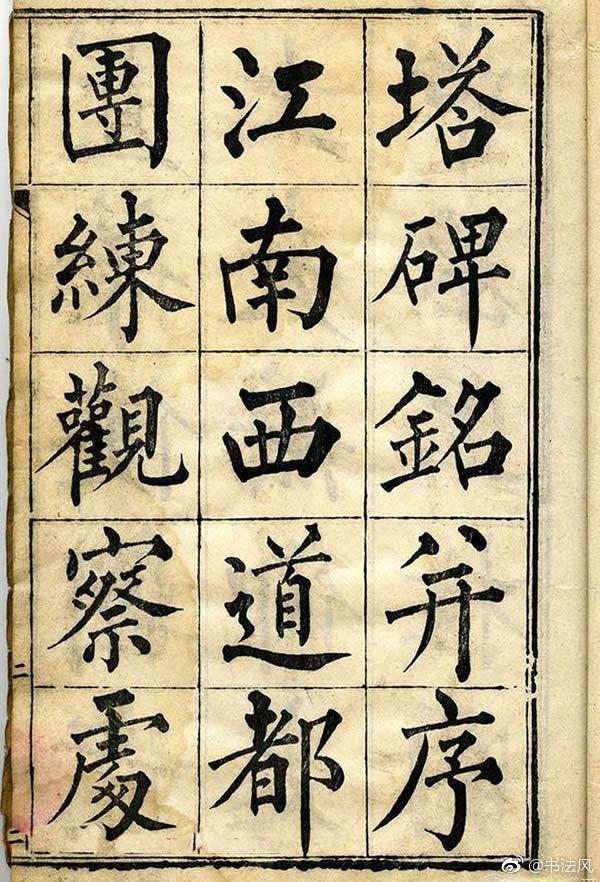 塔碑銘并序
江南西道都
團練觀察處
二
@书法风